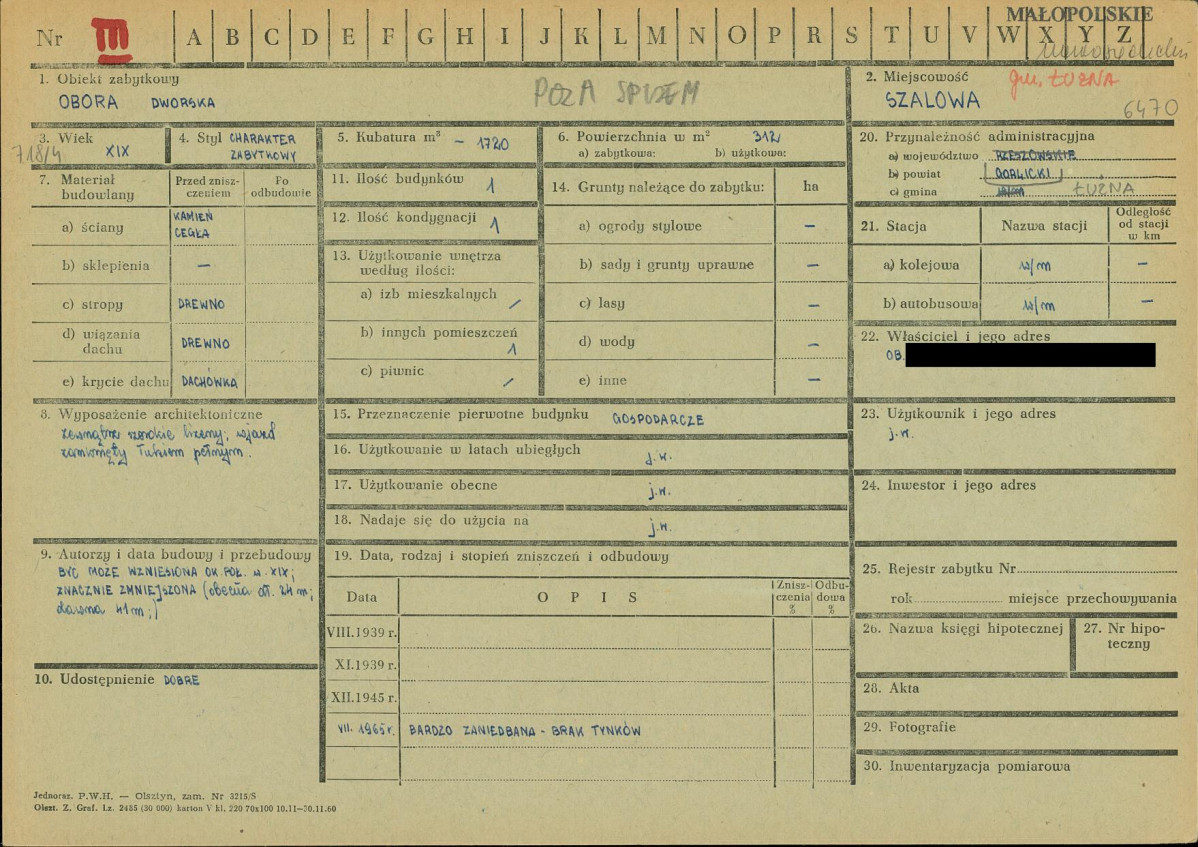 MAŁOPOLSKIE
Nr III A B C D E F G H I J K L M N O P R S T U V W X Y Z
1. Obiekt zabytkowy
OBORA DWORSKA
POZA SPISEM
2. Miejscowość gm. ŁUŻNA
SZALOWA
6470
3. Wiek
718/4 XIX
4. Styl CHARAKTER
ZABYTKOWY
5. Kubatura m³ – 1720
6. Powierzchnia w m² 312
a) zabytkowa: b) użytkowa:
7. Materiał budowlany
Przed zniszczeniem
Po odbudowie
a) ściany KAMIEŃ
CEGŁA
b) sklepienia —
c) stropy DREWNO
d) wiązania dachu DREWNO
e) krycie dachu DACHÓWKA
8. Wyposażenie architektoniczne
zewnątrz szerokie lizeny; wjazd
zamknięty łukiem pełnym.
9. Autorzy i data budowy i przebudowy
BYĆ MOŻE WZNIESIONA OK. POŁ. w. XIX;
ZNACZNIE ZMNIEJSZONA (obecna dł. 24 m;
dawna 41 m;)
10. Udostępnienie DOBRE
11. Ilość budynków 1
12. Ilość kondygnacji 1
13. Użytkowanie wnętrza według ilości:
a) izb mieszkalnych /
b) innych pomieszczeń 1
c) piwnic /
14. Grunty należące do zabytku: ha
a) ogrody stylowe —
b) sady i grunty uprawne —
c) lasy —
d) wody —
e) inne —
15. Przeznaczenie pierwotne budynku GOSPODARCZE
16. Użytkowanie w latach ubiegłych j.w.
17. Użytkowanie obecne j.w.
18. Nadaje się do użycia na j.w.
19. Data, rodzaj i stopień zniszczeń i odbudowy
Data OPIS Zniszczenia % Odbudowa %
VIII.1939 r.
XI.1939 r.
XII.1945 r.
VII. 1965 r. BARDZO ZANIEDBANA - BRAK TYNKÓW
20. Przynależność administracyjna
a) województwo RZESZOWSKIE
b) powiat GORLICKI
c) gmina w/m ŁUŻNA
21. Stacja Nazwa stacji Odległość od stacji w km
a) kolejowa w/m —
b) autobusowa w/m —
22. Właściciel i jego adres
OB.
23. Użytkownik i jego adres
j.w.
24. Inwestor i jego adres
25. Rejestr zabytku Nr
rok miejsce przechowywania
26. Nazwa księgi hipotecznej
27. Nr hipoteczny
28. Akta
29. Fotografie
30. Inwentaryzacja pomiarowa
Jednoraz. P.W.H. — Olsztyn, zam. Nr 3215/S
Olszt. Z. Graf. Lz. 2485 (30 000) karton V kl. 220 70x100 10.11—30.11.60